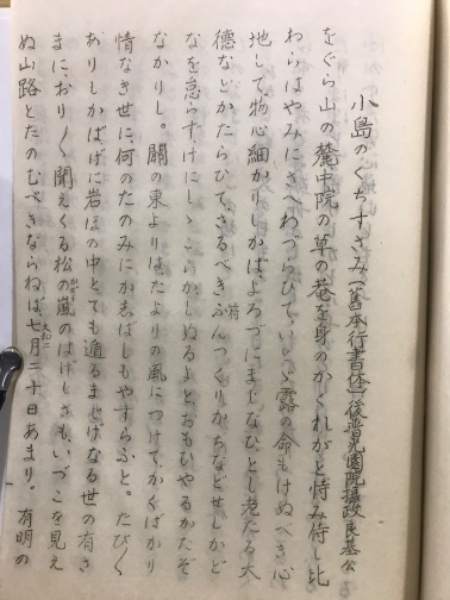 小島のくちすさみ(舊本行書体)後普光園院摂政良基公
をぐら山の麓中院の草の菴を身のかくれがと恃み侍し比
わらはやみにさへわづらひて、いとゞ露の命もけぬべき心
地して物心細かりしかば、よろづにまじなひ、とし老たる大
德などかたらひて、さるべきふんつくりかちなどせしかど
符
なを怠らず、けにしゝこらかしぬるよとおもひやるかたぞ
なかりし。關の東よりはたよりの風につけて、かくばかり
情なき世に、何のたのみにか志ばしもやすらふと。たび〳〵
ありしかば、げに岩ほの中とても遁るまじげなる世の有さ
まに、おり〳〵聞えくる松の嵐のはげしさも、いづこを見え
ぬ山路とたのむべきならねば、七月二十日あまり。有明の